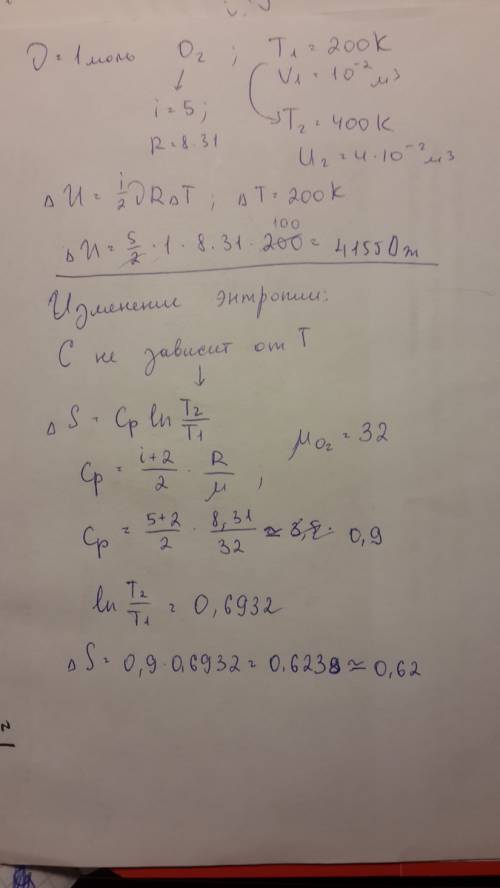 ν = 1 моль O₂ ; T₁ = 200 K
V₁ = 10⁻² м³
↓
i = 5 ;
R = 8.31
T₂ = 400 K
U₂ = 4·10⁻² м³
ΔU = i/2 νRΔT ; ΔT = 200 K
100
ΔU = 5/2 · 1 · 8.31 · 200 = 4155 Дж
Изменение энтропии:
C не зависит от T
↓
ΔS = Cp ln T₂/T₁
Cp = i+2/2 · R/μ , μO₂ = 32
Cp = 5+2/2 · 8,31/32 ≈ 0,9
ln T₂/T₁ = 0,6932
ΔS = 0,9·0,6932 = 0,6238 ≈ 0,62